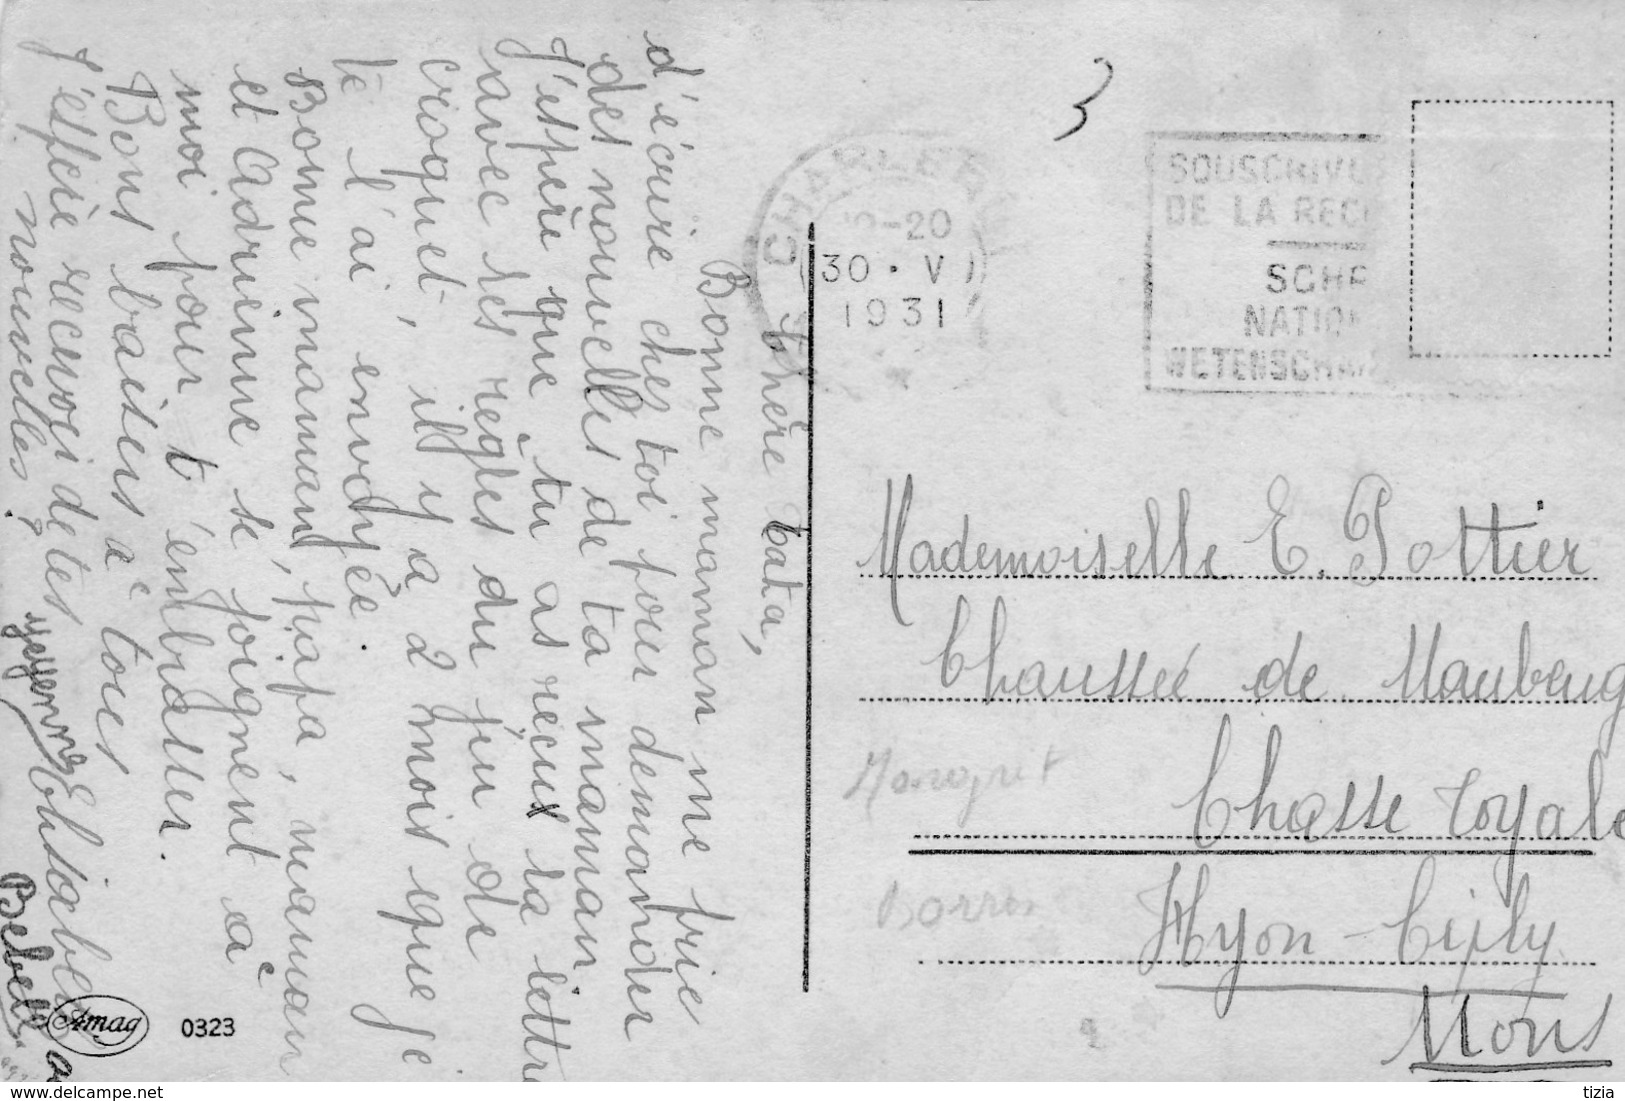 Chère tata,
Bonne maman me prie
d'écrire chez toi pour demander
des nouvelles de ta maman
J'espère que tu as recus la lettre
avec les regles du jeu de
croquet, il y a 2 mois que je
te l'ai envoyée.
Bonne maman, papa, maman
et Adrienne se joignent à
moi pour t'embrasser.
Bons baisers à tous
J'espère recevoir de tes
nouvelles?
Elisabeth
Amag 0323
3
CHARLER
-20
30 · V
1931
SOUSCRIVE
DE LA REC
SCHR
NATION
WETENSCHA
Mademoiselle E. Pottier
Chaussée de Maubeug
Chasse royale
Hyon-Ciply
Mons
tizia